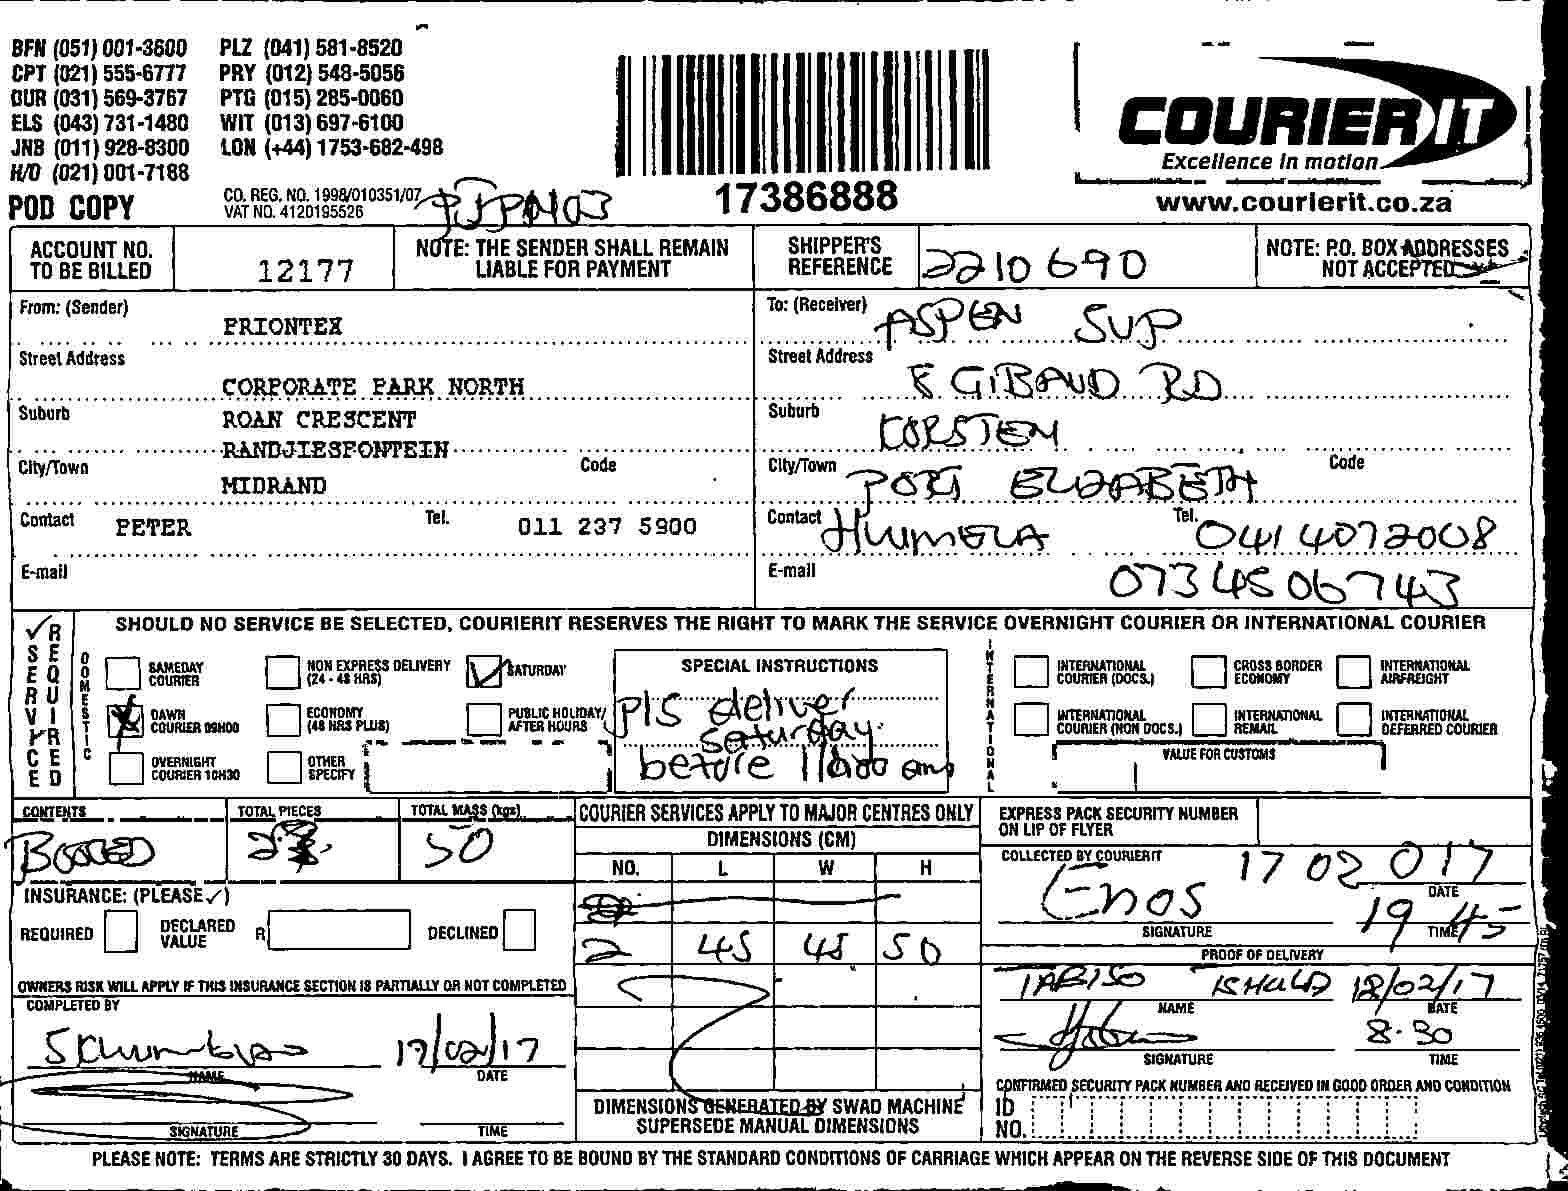 BFN (051) 001-3600 PLZ (041) 581-8520
CPT (021) 555-6777 PRY (012) 548-5056
DUR (031) 569-3767 PTG (015) 285-0060
ELS (043) 731-1480 WIT (013) 697-6100
JNB (011) 928-8300 LON (+44) 1753-682-498
H/O (021) 001-7188
POD COPY
CO. REG. NO. 1998/010351/07
VAT NO. 4120195526
17386888
COURIER IT
Excellence in motion
www.courierit.co.za
ACCOUNT NO. TO BE BILLED 12177
NOTE: THE SENDER SHALL REMAIN LIABLE FOR PAYMENT
SHIPPER'S REFERENCE 2210690
NOTE: P.O. BOX ADDRESSES NOT ACCEPTED
From: (Sender) PRIONTEX
Street Address
CORPORATE PARK NORTH
Suburb ROAN CRESCENT
RANDJIESFONTEIN
City/Town Code
MIDRAND
Contact PETER Tel. 011 237 5900
E-mail
To: (Receiver) ASPEN SVP
Street Address 8 GIBAUD RD
Suburb KORSTEN
City/Town PORT ELIZABETH Code
Contact HUMELA Tel. 041 4072008
E-mail 0734506743
SERVICE REQUIRED
SHOULD NO SERVICE BE SELECTED, COURIERIT RESERVES THE RIGHT TO MARK THE SERVICE OVERNIGHT COURIER OR INTERNATIONAL COURIER
DOMESTIC
SAMEDAY COURIER
NON EXPRESS DELIVERY (24 - 48 HRS)
SATURDAY
DAWN COURIER 09H00
ECONOMY (48 HRS PLUS)
PUBLIC HOLIDAY/ AFTER HOURS
OVERNIGHT COURIER 10H30
OTHER SPECIFY
SPECIAL INSTRUCTIONS
pls deliver
saturday
before
INTERNATIONAL
INTERNATIONAL COURIER (DOCS.)
CROSS BORDER ECONOMY
INTERNATIONAL AIRFREIGHT
INTERNATIONAL COURIER (NON DOCS.)
INTERNATIONAL REMAIL
INTERNATIONAL DEFERRED COURIER
VALUE FOR CUSTOMS
CONTENTS TOTAL PIECES TOTAL MASS (kgs)
BOXED 2 50
INSURANCE: (PLEASE ✓)
REQUIRED DECLARED VALUE R DECLINED
OWNERS RISK WILL APPLY IF THIS INSURANCE SECTION IS PARTIALLY OR NOT COMPLETED
COMPLETED BY
17/02/17
NAME DATE
SIGNATURE TIME
COURIER SERVICES APPLY TO MAJOR CENTRES ONLY
DIMENSIONS (CM)
NO. L W H
2 45 45 50
DIMENSIONS GENERATED BY SWAD MACHINE
SUPERSEDE MANUAL DIMENSIONS
EXPRESS PACK SECURITY NUMBER
ON LIP OF FLYER
COLLECTED BY COURIERIT
Enos 17 02 017
DATE
19 45
SIGNATURE TIME
PROOF OF DELIVERY
TABISO 18/02/17
NAME DATE
8.30
SIGNATURE TIME
CONFIRMED SECURITY PACK NUMBER AND RECEIVED IN GOOD ORDER AND CONDITION
ID NO.
PLEASE NOTE: TERMS ARE STRICTLY 30 DAYS. I AGREE TO BE BOUND BY THE STANDARD CONDITIONS OF CARRIAGE WHICH APPEAR ON THE REVERSE SIDE OF THIS DOCUMENT